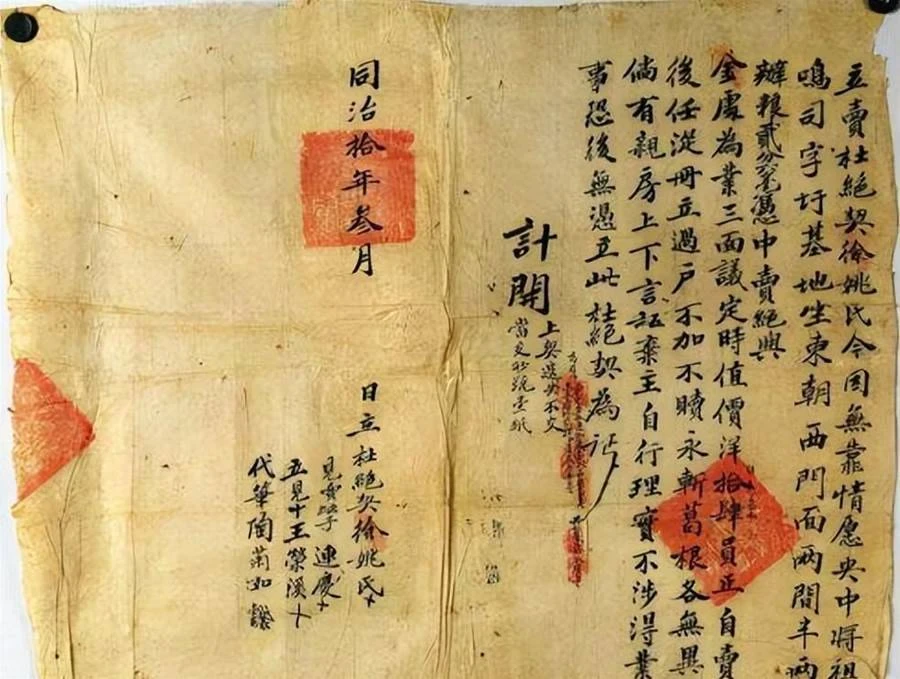 立賣杜絕契徐姚氏今因無靠情愿央中將祖
鳴司字圩基地坐東朝西門面兩間半兩
辦粮貳分憑中賣絕與
金處為業三面議定時值價洋拾肆員正自賣
後任從冊立過戶不加不贖永斬葛根各無異
倘有親房上下言証棄主自行理實不涉得業
事恐後無憑立此杜絕契為
計開
上契遺失不交
當交抄號壹紙
同治拾年叁月
日立杜絕契徐姚氏十
見賣 連慶十
五見十王榮溪十
代筆陶菊如